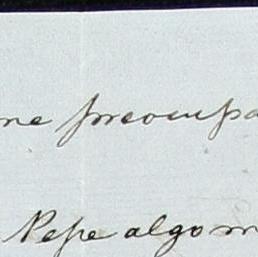 me preocupa
Pepe algo m